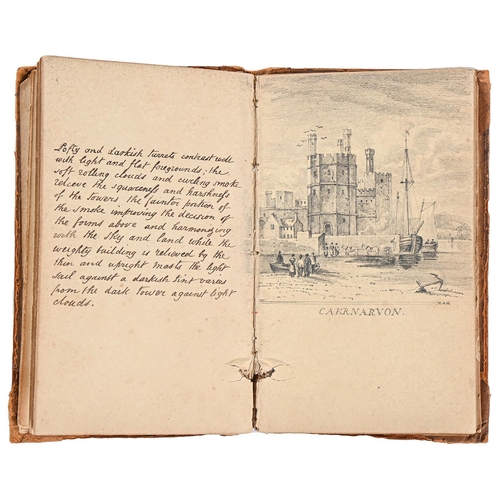 Lofty and darkish turrets contrast well
with light and flat foregrounds; the
soft rolling clouds and curling smoke
relieve the squareness and harshness
of the towers, the fainter portion of
the smoke improving the decision of
the forms above and harmonizing
with the sky and land while the
weighty building is relieved by the
thin and upright masts the light
sail against a darkish tint varies
from the dark tower against light
clouds.
CAERNARVON.